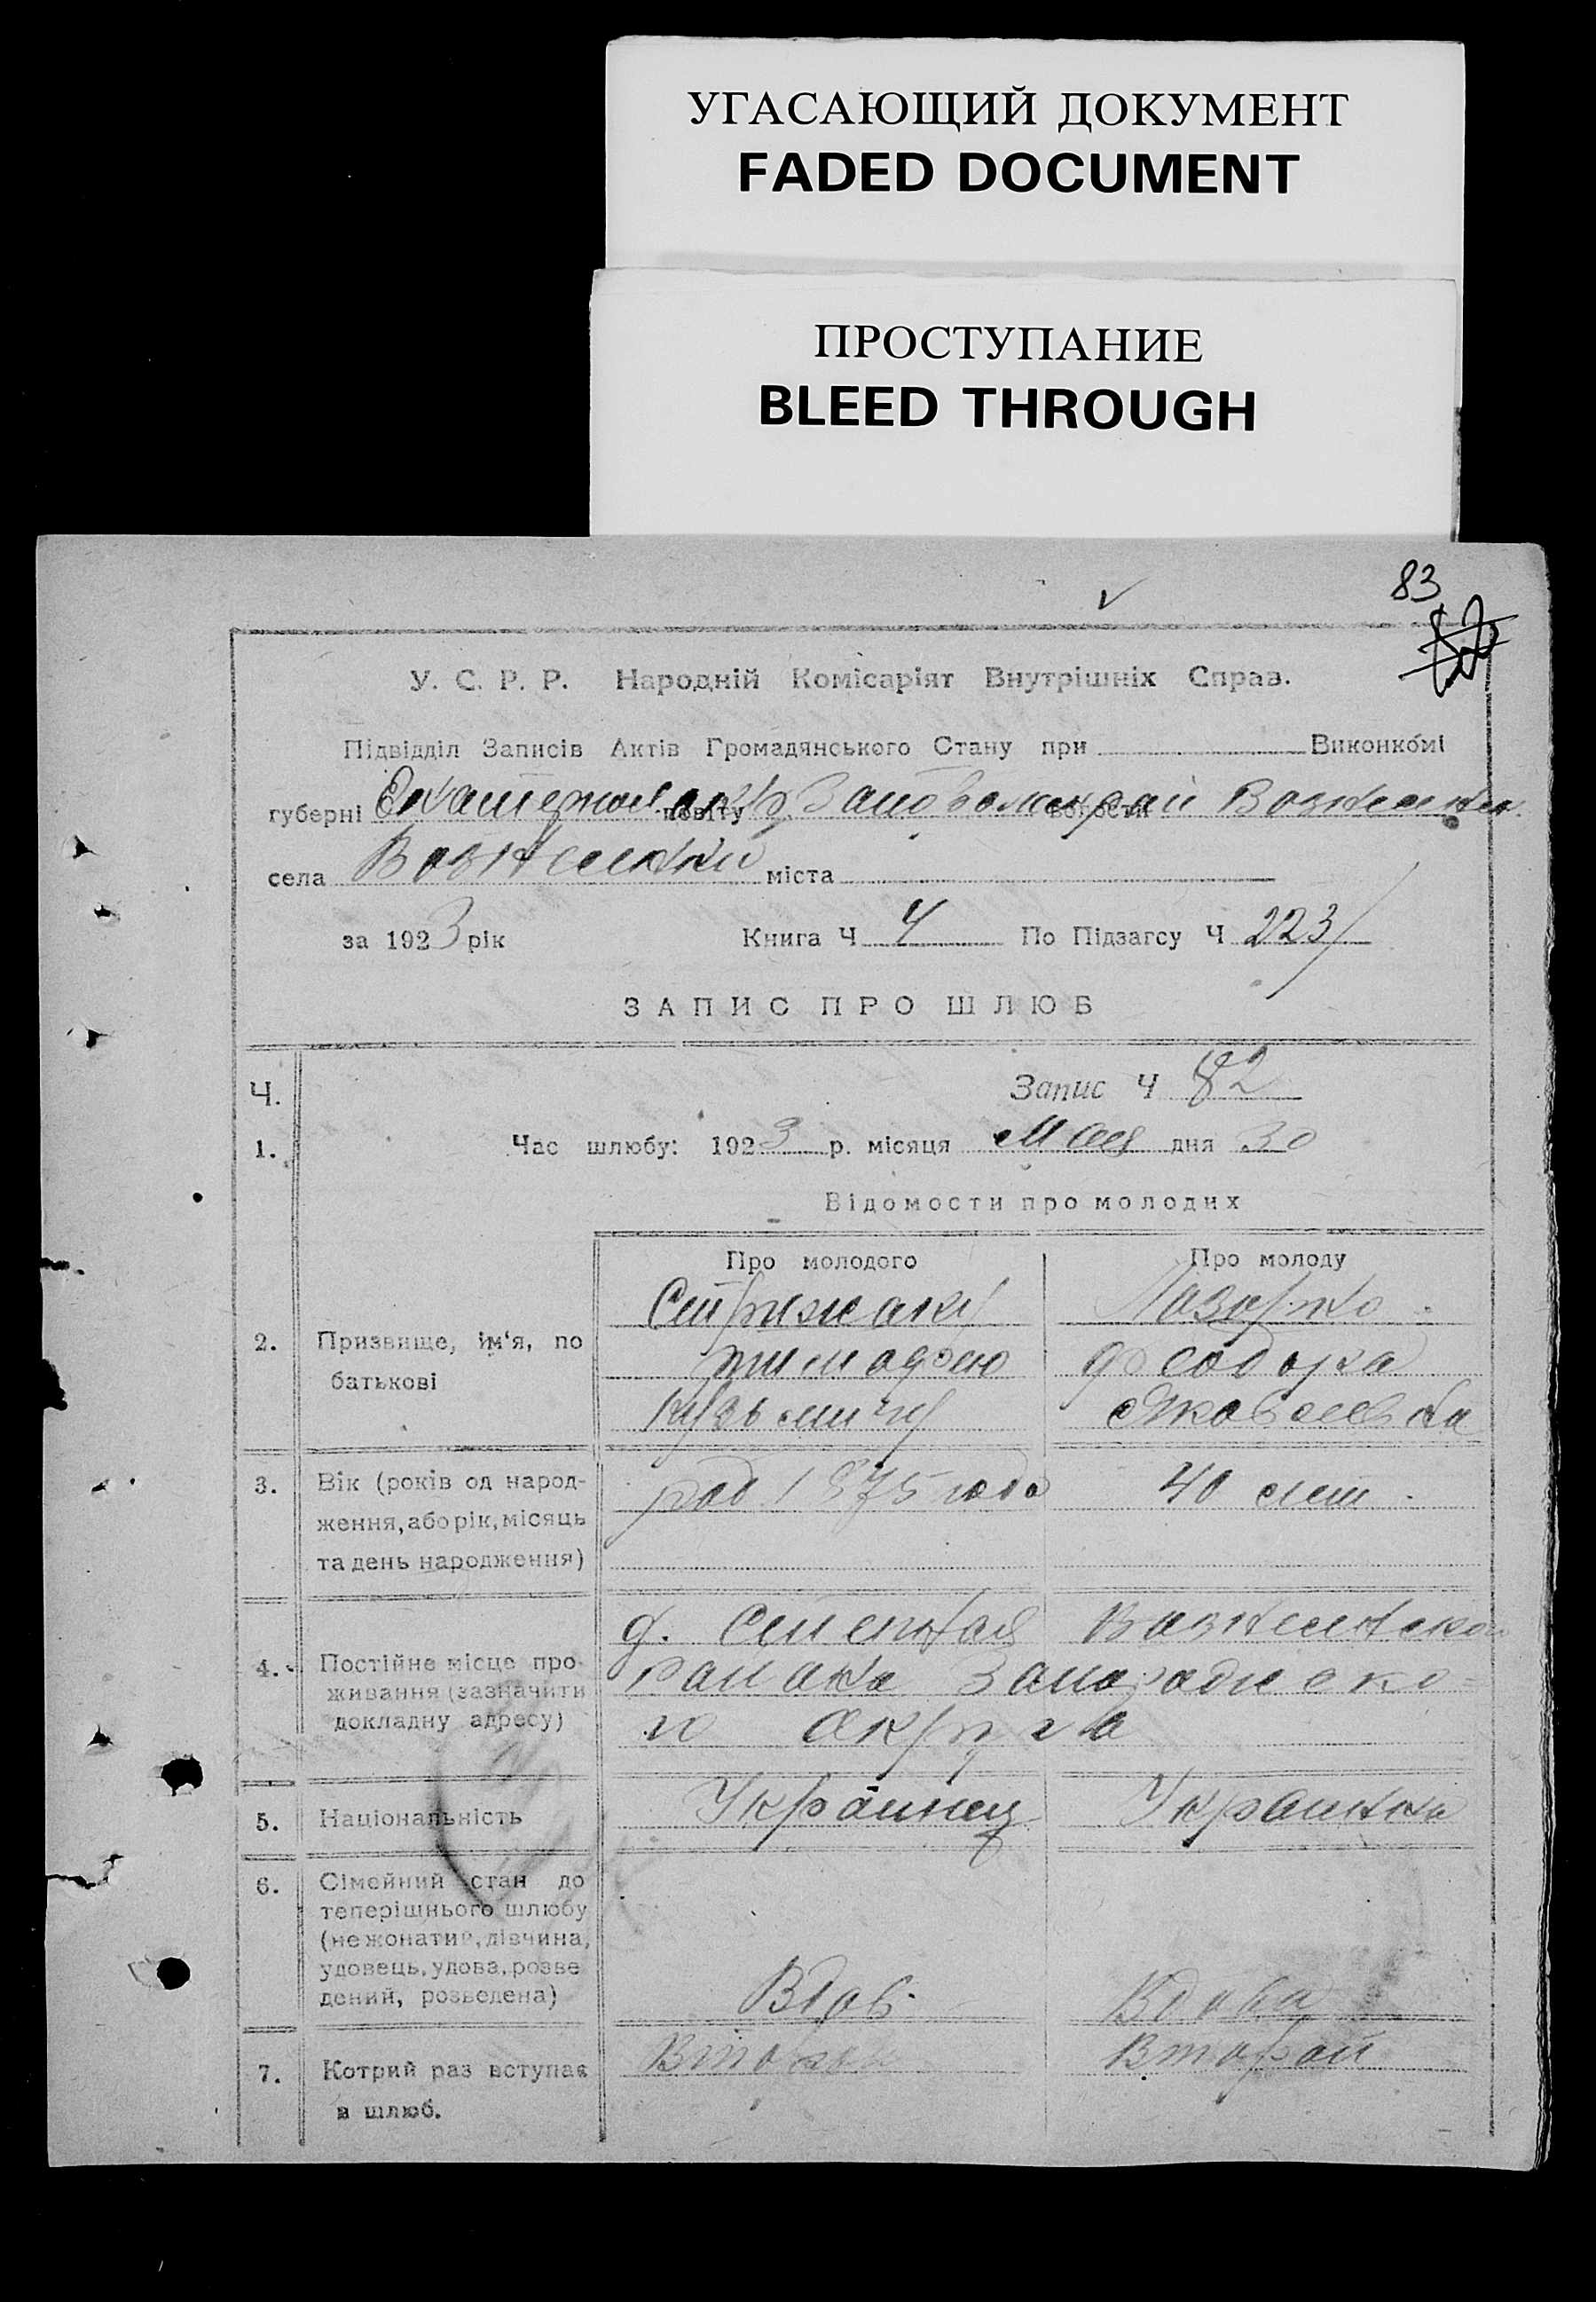 УГАСАЮЩИЙ ДОКУМЕНТ
FADED DOCUMENT
ПРОСТУПАНИЕ
BLEED THROUGH
83
У. С. Р. Р. Народній Комісаріят Внутрішніх Справ.
Підвідділ Записів Актів Громадянського Стану при Виконкомі
губерні повіту волости
села Вознесенки міста
за 1923 рік Книга Ч 4 По Підзагсу Ч 223
ЗАПИС ПРО ШЛЮБ
Ч. Запис Ч 82
1. Час шлюбу: 1923 р. місяця Мая дня 30
Відомости про молодих
Про молодого Про молоду
2. Призвище, ім'я, по батькові
Стрижаку Лазорко
Тимофею Феодора
Кузьмичу Яковлевна
3. Вік (років од народ-
ження, або рік, місяць
та день народження)
род. 1875 года 40 лет
4. Постійне місце про-
живання (зазначити
докладну адресу)
д. Степная Вознесенско
района Запорожско-
го округа
5. Національність Украинец Украинка
6. Сімейний стан до
теперішнього шлюбу
(нежонатий, дівчина,
удовець, удова, розве
дений, розведена)
Вдов. Вдова
7. Котрий раз вступає
в шлюб.
Второй Второй